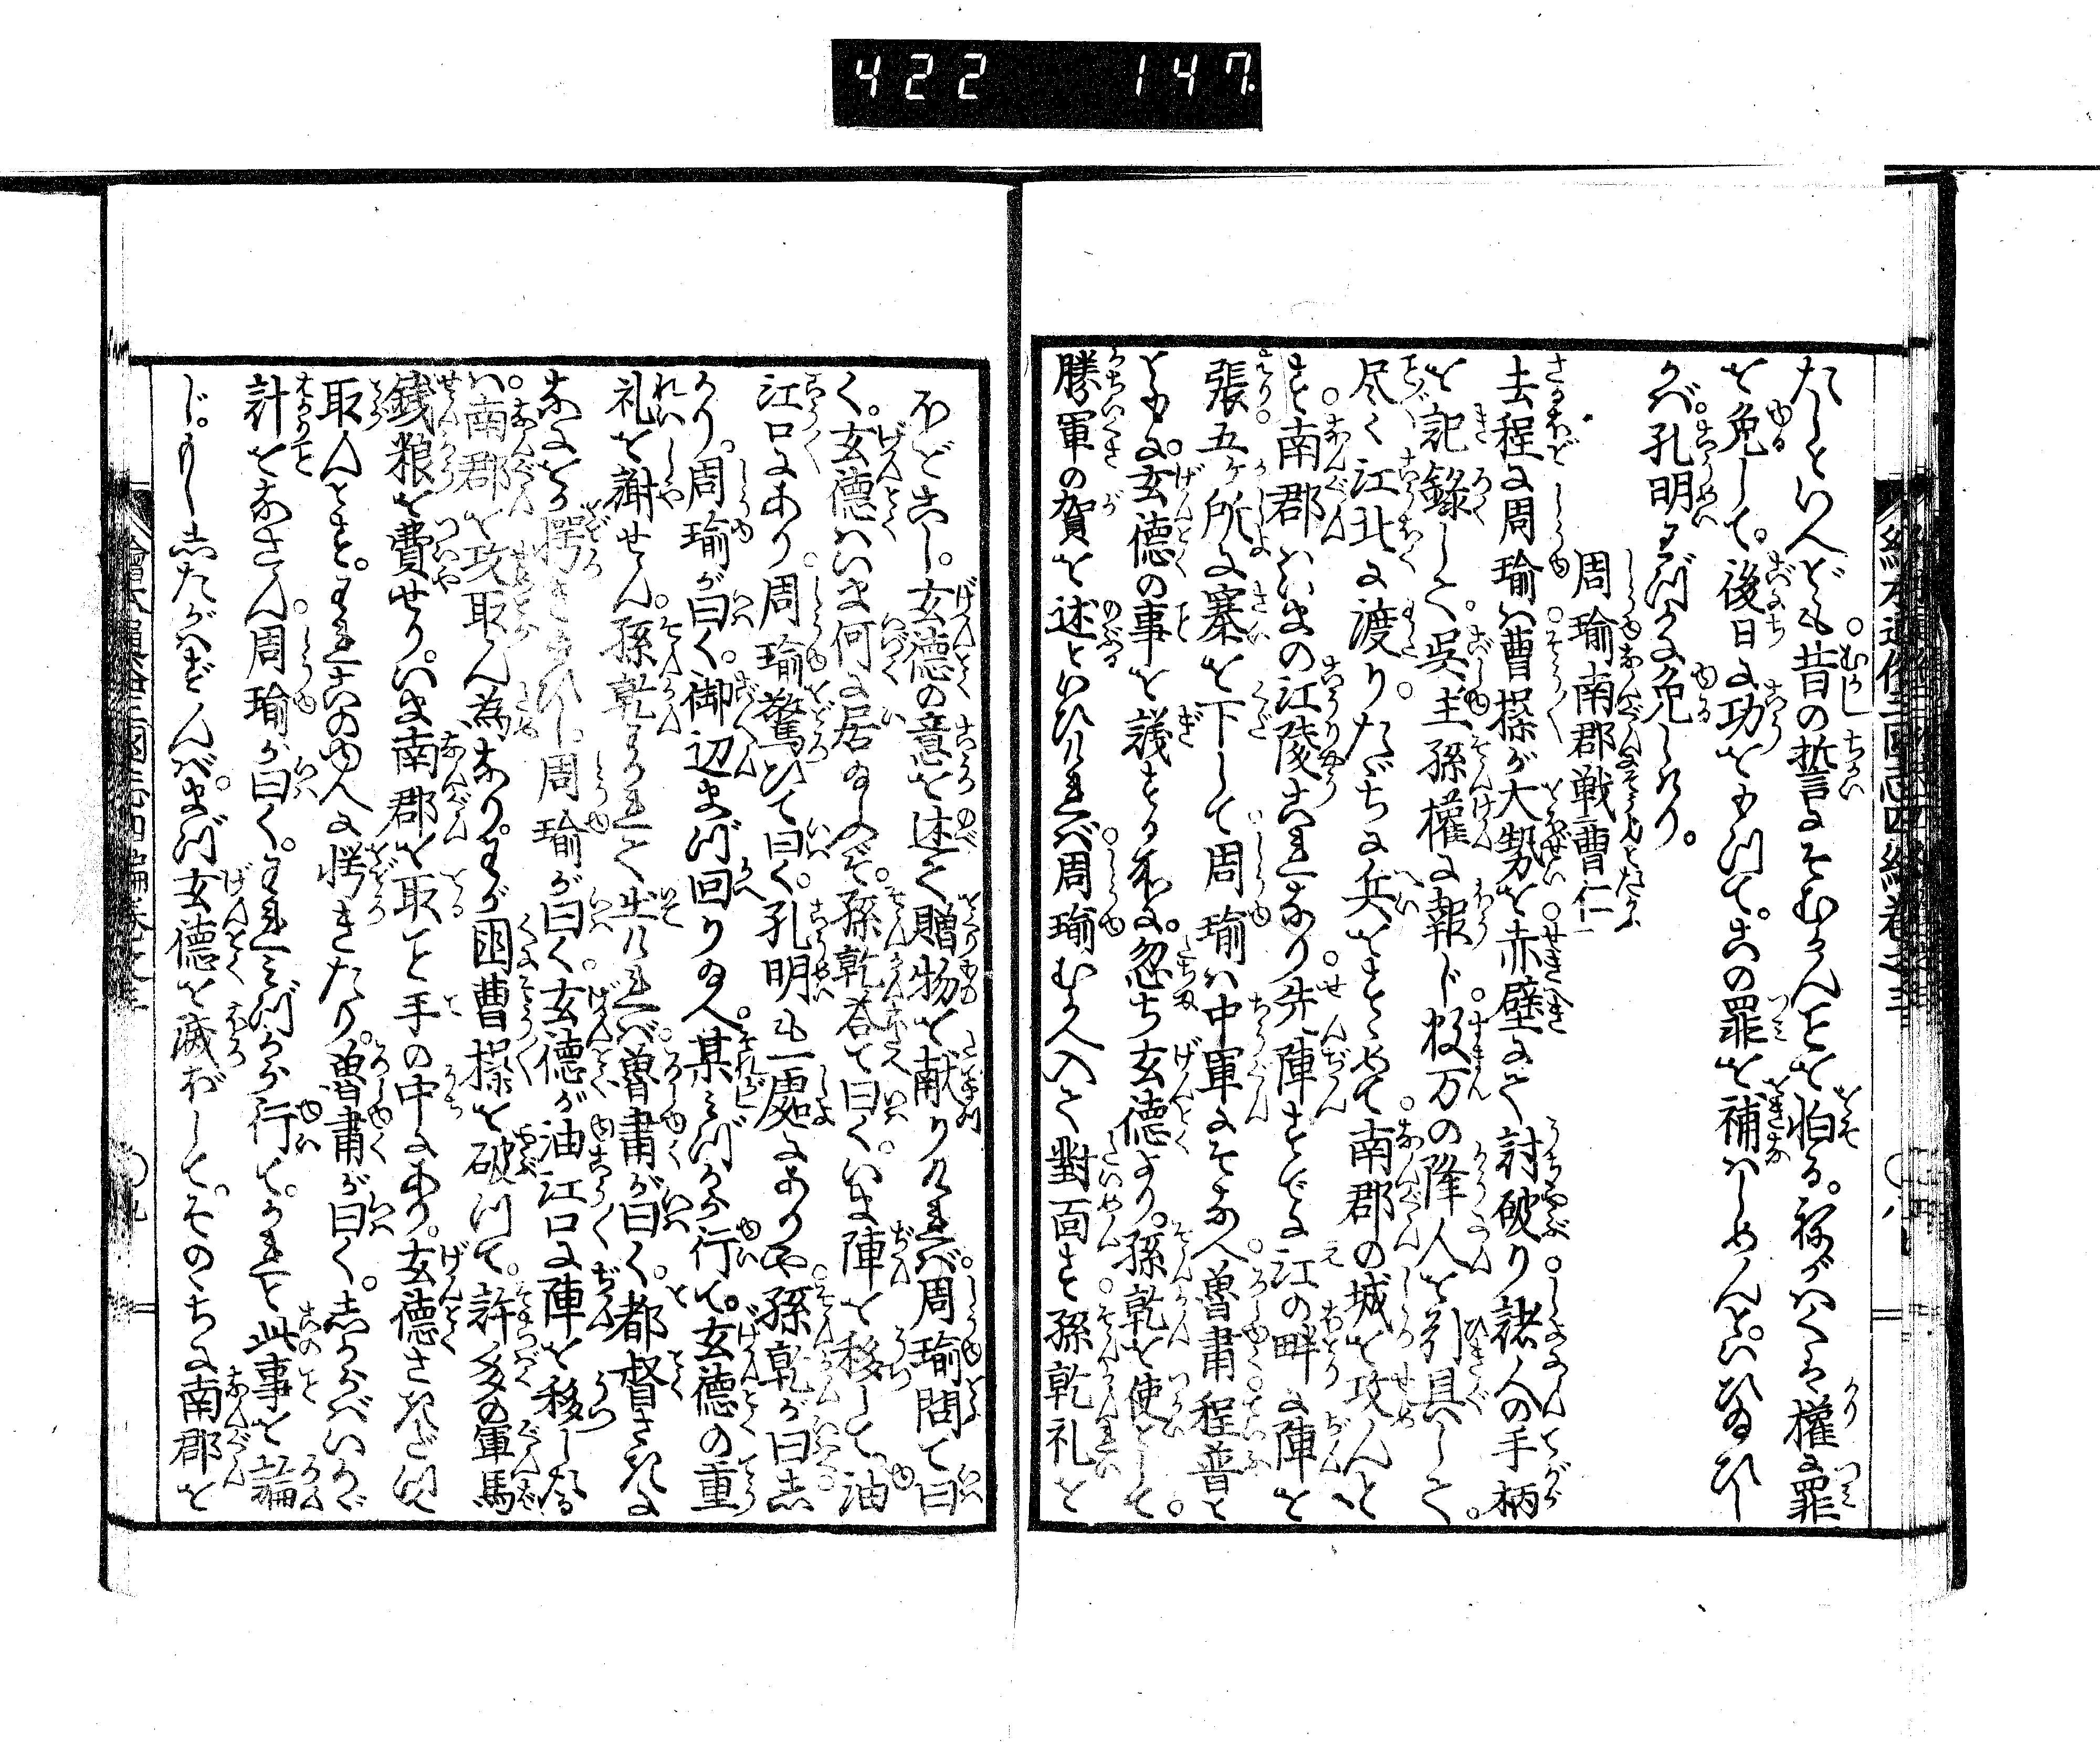 422 147
繪本通俗三國志四編卷之三 〇八
たしといへども昔の誓にそむかんことを怕る。祢がはくは權に罪
を免して。後日に功を立て。此の罪を補はしめんといひ給ひし
かば。孔明わづかに免しけり。
周瑜南郡戦二曹仁一
去程に周瑜は曹操が大勢を赤壁にて討破り諸人の手柄
を記録して呉主孫權に報じ数万の降人を引具して。
尽く江北に渡りたゞちに兵をすゝめて南郡の城を攻んと
す南郡はいまの江陵これなり先陣すでに江の畔に陣を
張五ケ所に寨を下して周瑜は中軍にそなへ魯肅程普と
ともに。玄德の事を議する処に。忽ち玄德より。孫乾を使として。
勝軍の賀を述といひければ周瑜むかへ入て對面す孫乾礼を
ほどこし。玄德の意を述て贈物を献りければ。周瑜問て曰
く。玄德はいま何に居給ふぞ。孫乾荅て曰く。いま陣を移して油
江口にあり周瑜驚ひて曰く。孔明も一處にありや孫乾が曰し
かり。周瑜が曰く。御辺まづ回り給へ某みづから行て。玄德の重
礼を謝せん孫乾わかれて出ければ魯肅が曰く。都督さきに
なにを愕きたまひし周瑜が曰く玄德が油江口に陣を移したる
は。南郡を攻取ん為なり。わが国曹操を破つて。許多の軍馬
銭粮を費せり。いま南郡を取こと手の中にあり。玄德さきだつて
取んとす。われこのゆへに愕きたり。魯肅が曰く。しからばいかゞ
計をなさん周瑜が曰く。われみづから行て。かれと此事を論
じ。もししたがはずんば。まづ玄德を滅ぼして。そのゝちに南郡を
繪本通俗三國志四編卷之三 〇九